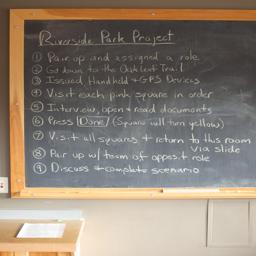 Riverside Park Project
① Pair up and assigned a role
② Go down to the Outdoor Trail
③ Issued Handheld + GPS Devices
④ Visit each pink square in order
⑤ Interview, open + read documents
⑥ Press [Done] (Square will turn yellow)
⑦ Visit all squares + return to this room
via slide
⑧ Pair up w/ team of oppos.t role
⑨ Discuss + complete scenario